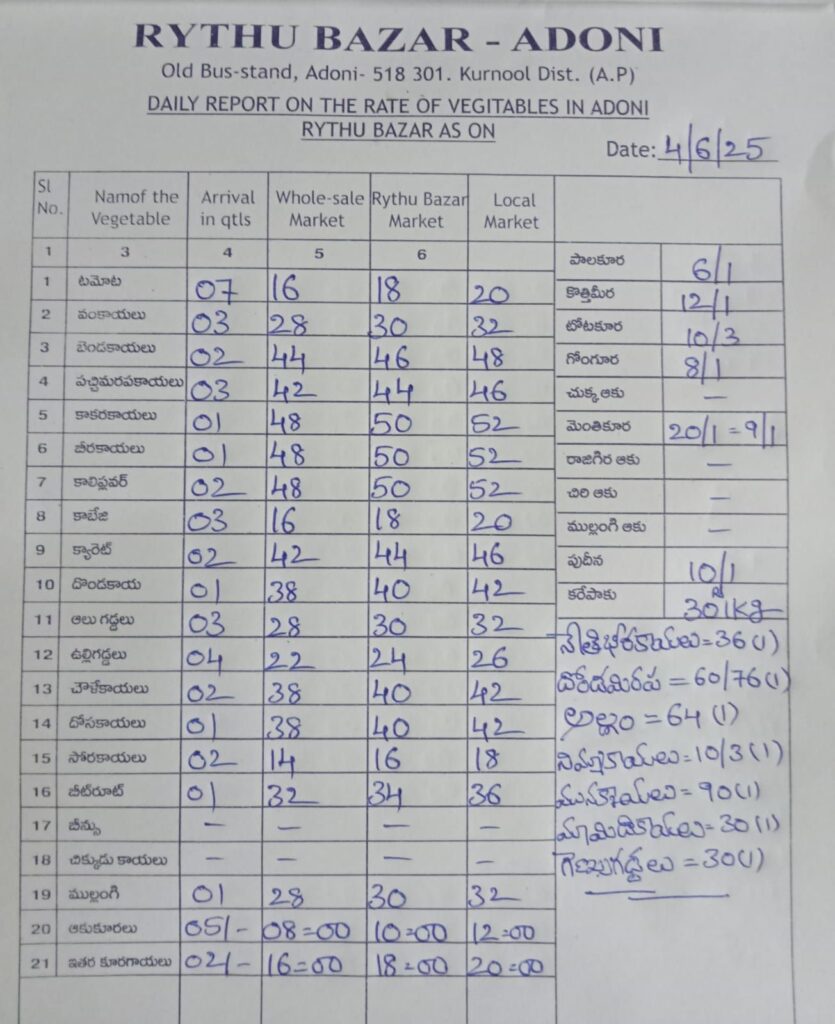 RYTHU BAZAR - ADONI
Old Bus-stand, Adoni- 518 301. Kurnool Dist. (A.P)
DAILY REPORT ON THE RATE OF VEGITABLES IN ADONI
RYTHU BAZAR AS ON
Date: 4/6/25
Sl No. Namof the Vegetable Arrival in qtls Whole-sale Market Rythu Bazar Market Local Market
1 3 4 5 6
1 టమోట 07 16 18 20
2 వంకాయలు 03 28 30 32
3 బెండకాయలు 02 44 46 48
4 పచ్చిమిరపకాయలు 03 42 44 46
5 కాకరకాయలు 01 48 50 52
6 బీరకాయలు 01 48 50 52
7 కాలిఫ్లవర్ 02 48 50 52
8 కాబేజి 03 16 18 20
9 క్యారెట్ 02 42 44 46
10 దొండకాయ 01 38 40 42
11 ఆలు గడ్డలు 03 28 30 32
12 ఉల్లిగడ్డలు 04 22 24 26
13 చౌళేకాయలు 02 38 40 42
14 దోసకాయలు 01 38 40 42
15 సోరకాయలు 02 14 16 18
16 బీట్‌రూట్ 01 32 34 36
17 బీన్సు — — — —
18 చిక్కుడు కాయలు — — — —
19 ముల్లంగి 01 28 30 32
20 ఆకుకూరలు 05/- 08=00 10=00 12=00
21 ఇతర కూరగాయలు 02/- 16=00 18=00 20=00
పాలకూర 6/1
కొత్తిమీర 12/1
టోటకూర 10/3
గోంగూర 8/1
చుక్క ఆకు —
మెంతికూర 20/1=9/1
రాజగిర ఆకు —
చిరి ఆకు —
ముల్లంగి ఆకు —
పుదీన 10/1
కరేపాకు 30/1kg
నేతిబీరకాయలు=36(1)
దోరదమిరప = 60/76(1)
అల్లం = 64 (1)
నిమ్మకాయలు=10/3(1)
మునక్కాయలు= 90(1)
మామిడికాయలు=30(1)
గెణుసుగడ్డలు =30(1)